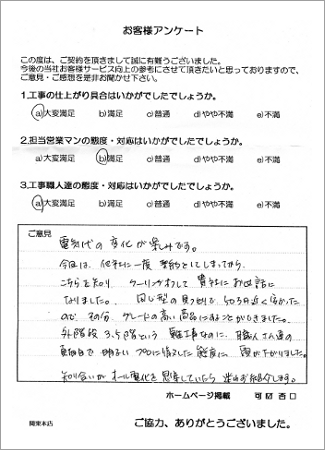 お客様アンケート
この度は、ご契約を頂きまして誠に有難うございました。
今後の当社お客様サービス向上の参考にさせて頂きたいと思っておりますので、
ご意見・ご感想を是非お聞かせ下さい。
1.工事の仕上がり具合はいかがでしたでしょうか。
a)大変満足 b)満足 c)普通 d)やや不満 e)不満
2.担当営業マンの態度・対応はいかがでしたでしょうか。
a)大変満足 b)満足 c)普通 d)やや不満 e)不満
3.工事職人達の態度・対応はいかがでしたでしょうか。
a)大変満足 b)満足 c)普通 d)やや不満 e)不満
ご意見
電気代の変化が楽しみです。
今回は、他社に一度契約をしてしまってから、
こちらを知り、クーリングオフして貴社にお世話に
なりました。同じ型の見積りで、50万近く安かった
ので、その分、グレードの高い商品にすることができました。
外階段3.5階という難工事なのに、職人さん達の
真面目で明るいプロに徹した態度に頭が下がりました。
知り合いがオール電化を思案していたら是非お紹介します。
ホームページ掲載 可 ☑ 否 □
関東本店
ご協力、ありがとうございました。